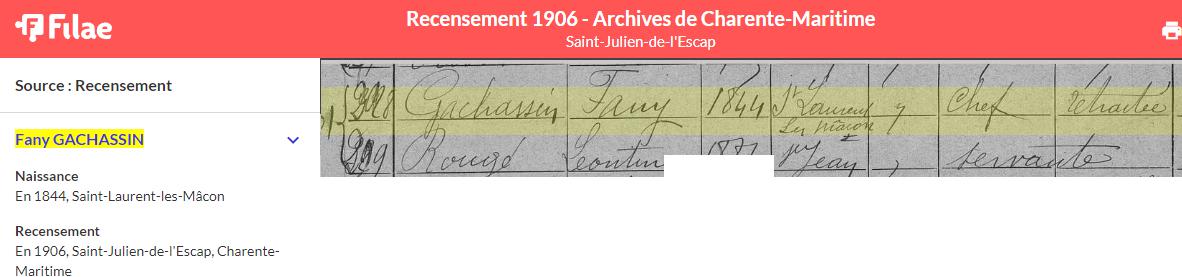 Filae
Recensement 1906 - Archives de Charente-Maritime
Saint-Julien-de-l'Escap
Source : Recensement
Fany GACHASSIN
Naissance
En 1844, Saint-Laurent-les-Mâcon
Recensement
En 1906, Saint-Julien-de-l'Escap, Charente-
Maritime
Gachassin Fany 1844 St Laurent Chef retraitée
Les Mâcon
Rougé Jean servante